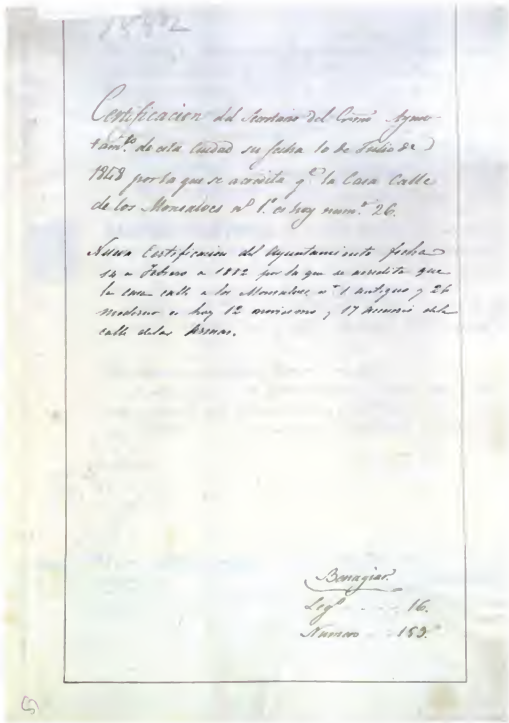 Certificacion del Secretario del Exmo Ayun-
tamto de esta Ciudad su fecha 10 de Julio de
1848 por la que se acredita qe la Casa Calle
de los Monsalves nº 1º es hoy numº 26.
Nueva Certificacion del Ayuntamiento fecha
14 a Febrero a 1882 por la que se acredita que
la casa calle a los Monsalves nº 1 antiguo y 26
moderno es hoy 12 novisimo y 17 dela
calle delas Armas.
Benagiar.
Legº 16.
Numero 153.